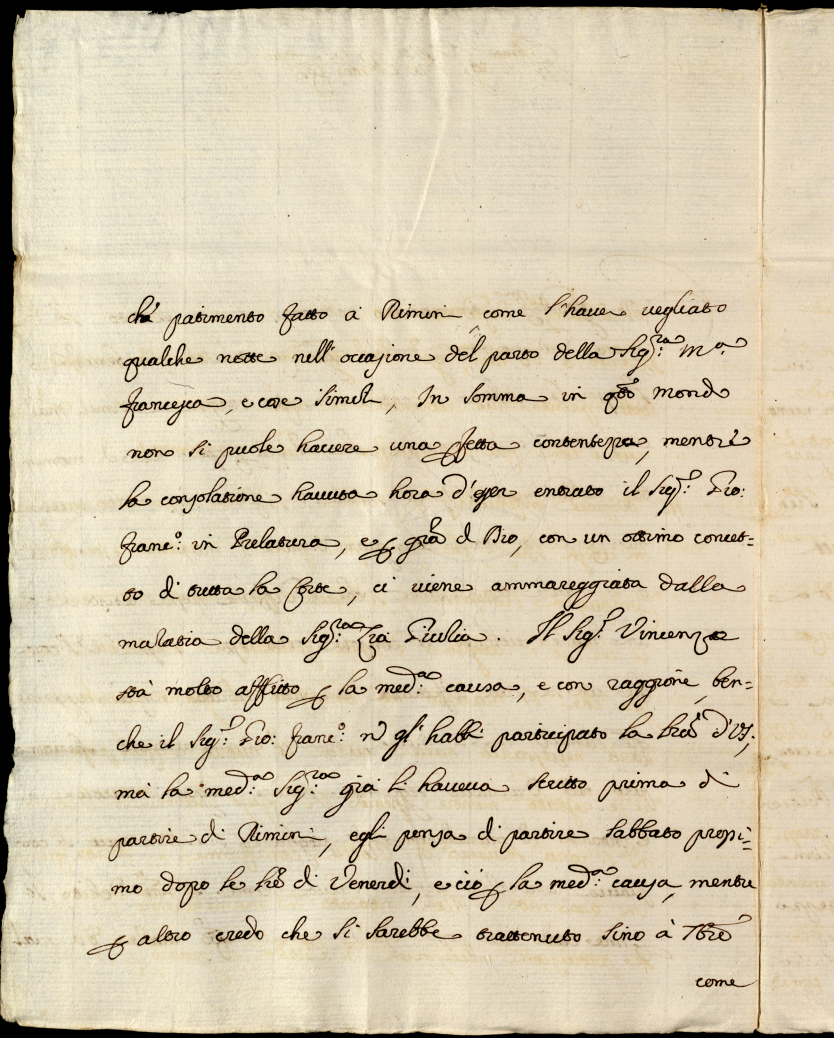 chi patimento fatto à Rimini, come l'haver vegliato
qualche notte nell'occasione del parto della Sig.ra M.a
Francesca, e cose simili, In somma in q.sto mondo
non si puole havere una p̱fetta contentezza, mentre
la consolatione havuta hora d'esser entrato il Sig.r Gio:
Franc.o in Prelatura, e p̱ gr̃a di Dio, con un ottimo concet=
to di tutta la Corte, ci viene ammareggiata dalla
malatia della Sig.ra Zia Giulia. Il Sig.r Vincenzo
stà molto afflitto p̱ la med.a causa, e con raggione, ben=
che il Sig.r Gio: Franc.o nõ gl'habbi participato la lrã d'VS;
mà la med.a Sig.ra già li haveva scritto prima di
partire di Rimini, egli pensa di partire Sabbato prossi=
mo dopo le lrẽ di Venerdì, e ciò p̱ la med.a causa, mentre
p̱ altro credo che si sarebbe trattenuto sino à 7brẽ
come